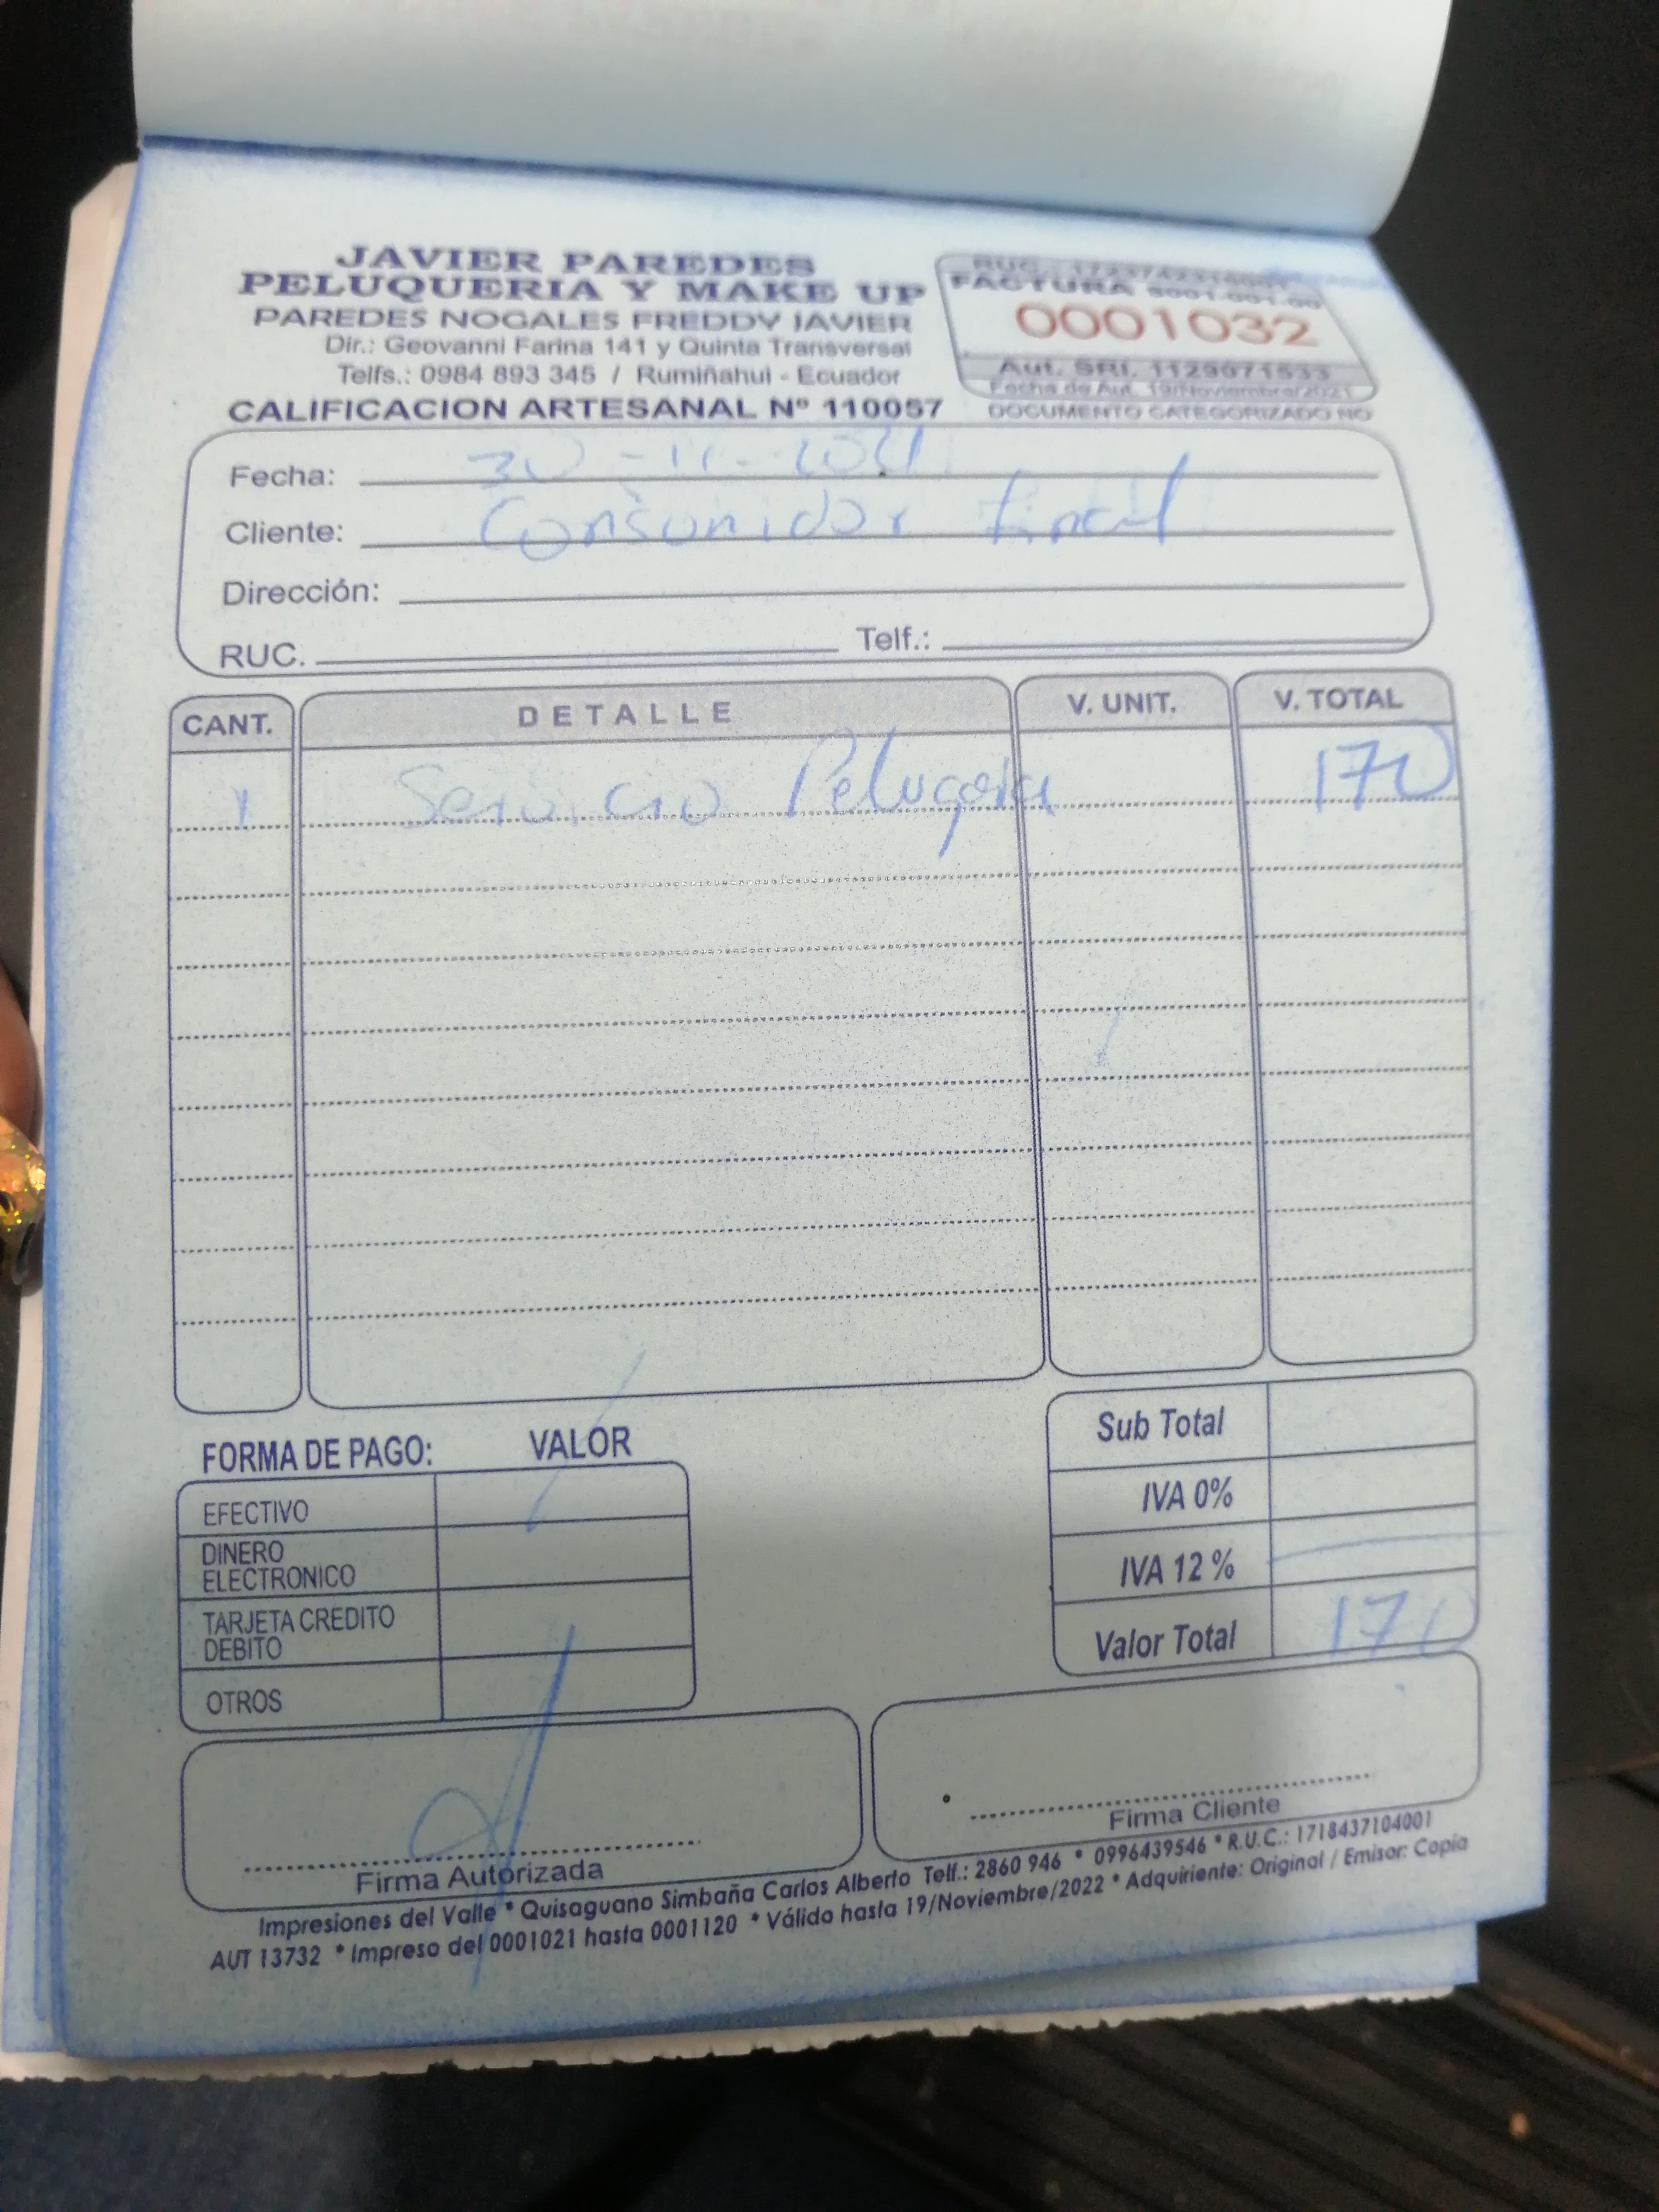 JAVIER PAREDES
PELUQUERIA Y MAKE UP
PAREDES NOGALES FREDDY JAVIER
Dir.: Geovanni Farina 141 y Quinta Transversal
Telfs.: 0984 893 345 / Rumiñahui - Ecuador
CALIFICACION ARTESANAL Nº 110057
RUC.
FACTURA S001-001-00
0001032
Aut. SRI. 1129671533
Fecha de Aut. 19/Noviembre/2021
DOCUMENTO CATEGORIZADO NO
Fecha: 30-11-2021
Cliente: Consumidor final
Dirección:
RUC. Telf.:
CANT. DETALLE V. UNIT. V. TOTAL
1 Servicio 170
FORMA DE PAGO: VALOR
EFECTIVO
DINERO
ELECTRONICO
TARJETA CREDITO
DEBITO
OTROS
Sub Total
IVA 0%
IVA 12 %
Valor Total 170
Firma Autorizada
Firma Cliente
Impresiones del Valle * Quisaguano Simbaña Carlos Alberto Telf.: 2860 946 * 0996439546 * R.U.C.: 1718437104001
AUT 13732 * Impreso del 0001021 hasta 0001120 * Válido hasta 19/Noviembre/2022 * Adquiriente: Original / Emisor: Copia